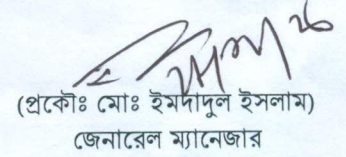 (প্রকৌঃ মোঃ ইমদাদুল ইসলাম)
জেনারেল ম্যানেজার